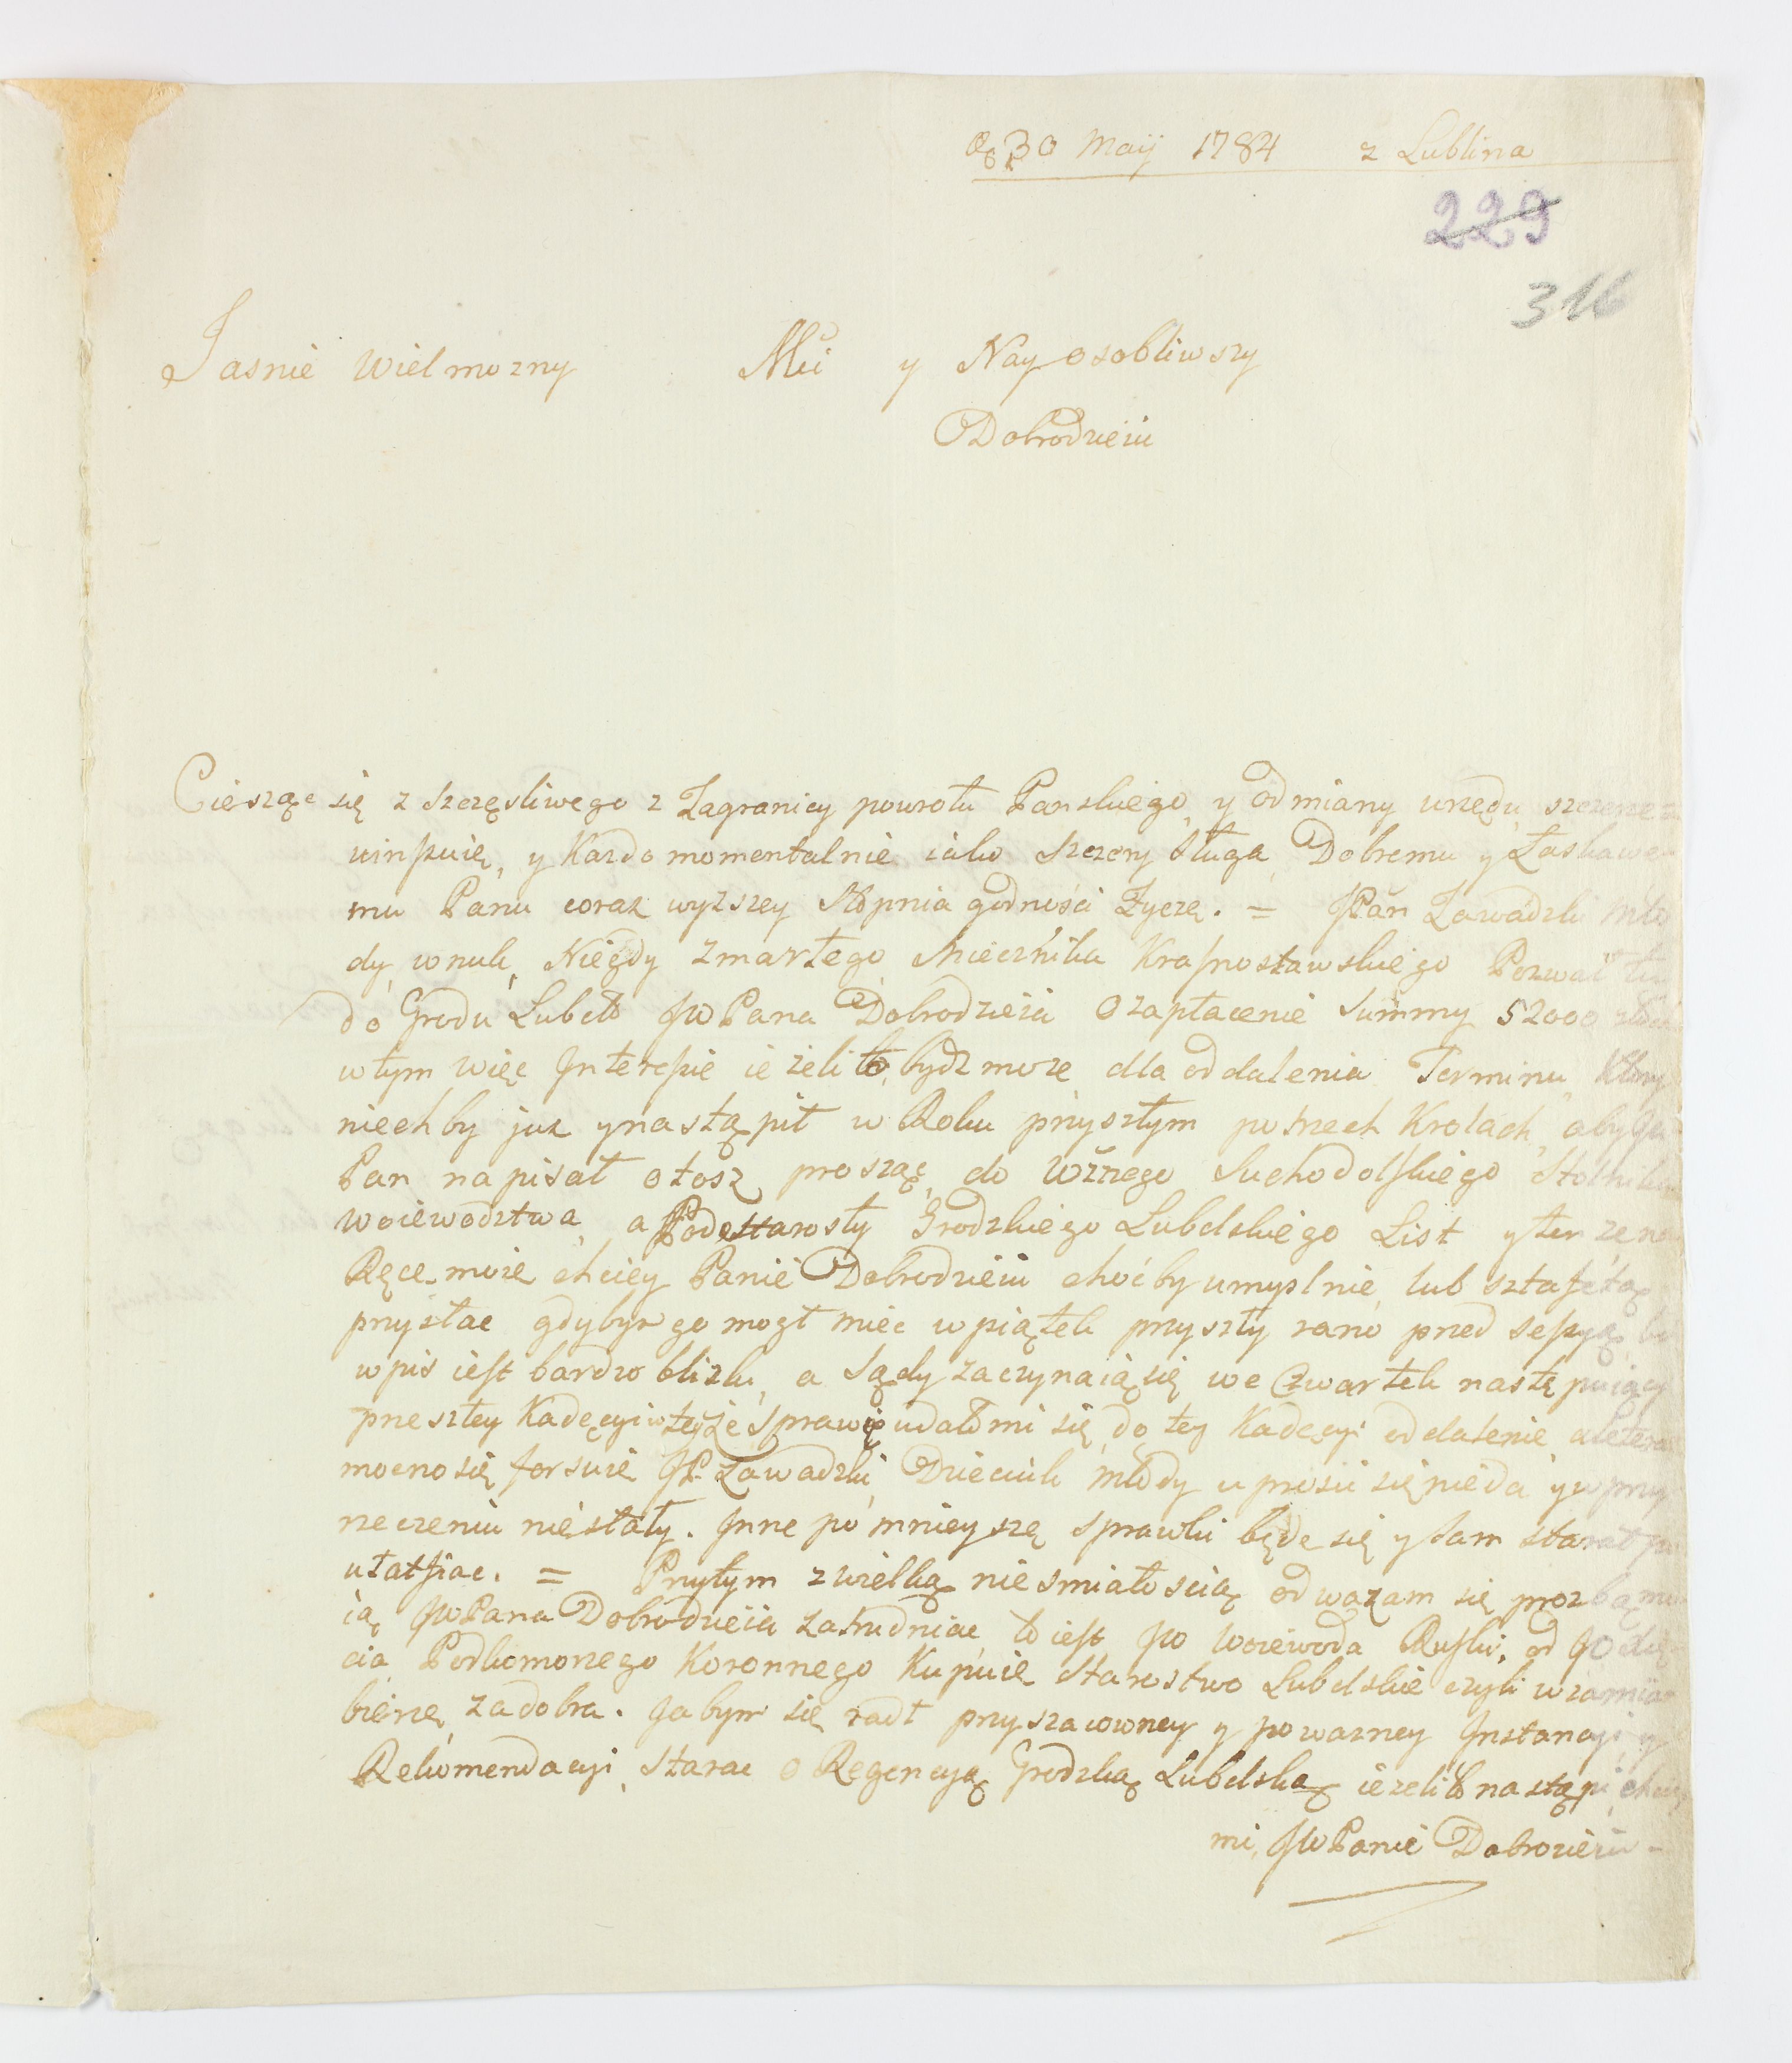 30 Maij 1784 z Lublina
229
316
Jasnie Wielmozny Mci y Nayosobliwszy
Dobrodzieiu
Ciesząc się z szczęsliwego z Zagranicy powrotu Panskiego, y odmiany urzędu
winszuię, y Kazdo momentalnie iako szczery sługa Dobremu y Łaskawe-
mu Panu coraz wyzszey Stopnia godności Zyczę. = JPan Zawadzki mło
dy wnuk, Niegdy zmarłego Miecznika Krasnostawskiego Pozwał tu
do Grodu Lubelo JW Pana Dobrodzieia o zapłacenie Summy 52000
w tym więc Interessie ieżeli to, bydz moze dla oddalenia Terminu Ktory
niechby juz y nastąpił w Roku przyszłym po trzech Krolach, aby JW
Pan napisał o tosz prosząc, do Wżnego Suchodolskiego Stolnika
Woiewodztwa, a Podstarosty Grodzkiego Lubelskiego List y ten ze na
Ręce moie chciey Panie Dobrodzieiu choćby umyslnie, lub sztafetą
przysłac gdybym go mogł miec w piątek przyszły rano przed sessyą, bo
wpis iest bardzo blizki, a Sądy zaczynaią się we Czwartek następuiący
przeszłey Kadęcyi w teyże sprawie udało mi się do tey Kadęcyi oddalenie, ale teraz
mocno się forsuie JP. Zawadzki Dzieciuk młody uprosic się nie da y w przy
rzeczeniu niestały. Inne po mnieysze sprawki będę się y sam starał
ułatfiac. = Przytym z wielką niesmiałoscią odwazam się prozbą mo
ią JW Pana Dobrodzieia zatrudniac, to iest JW Woiewoda Ruski, od JO Xię
cia Podkomorzego Koronnego Kupuie Starostwo Lubelskie czyli w zamia
bierze za dobra. Ja bym się rad przy szacowney y powazney Instancyi y
Rekomendacyi, starac o Regencyą Grodzką Lubelską iezeli to nastąpi, chciey
mi, JW Panie Dobrozieiu -